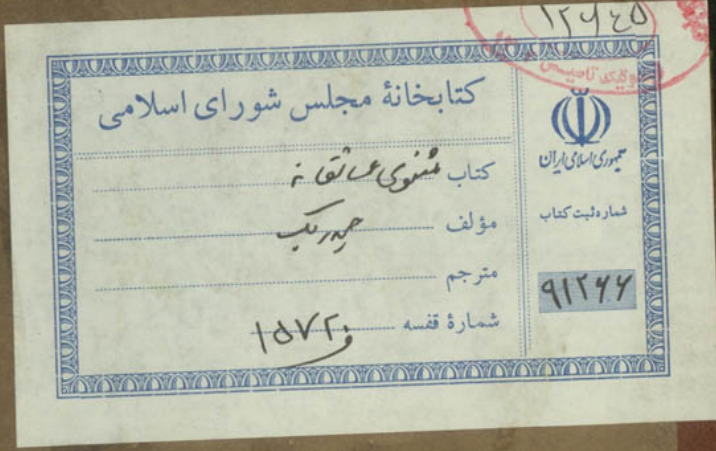 ۱۲۶۴۵
کتابخانهٔ مجلس شورای اسلامی
کتاب مثنوی عاشقانه
مؤلف حیدر بیک
مترجم
شمارهٔ قفسه ۱۵۷۲۰
جمهوری اسلامی ایران
شماره ثبت کتاب
۹۱۲۶۶